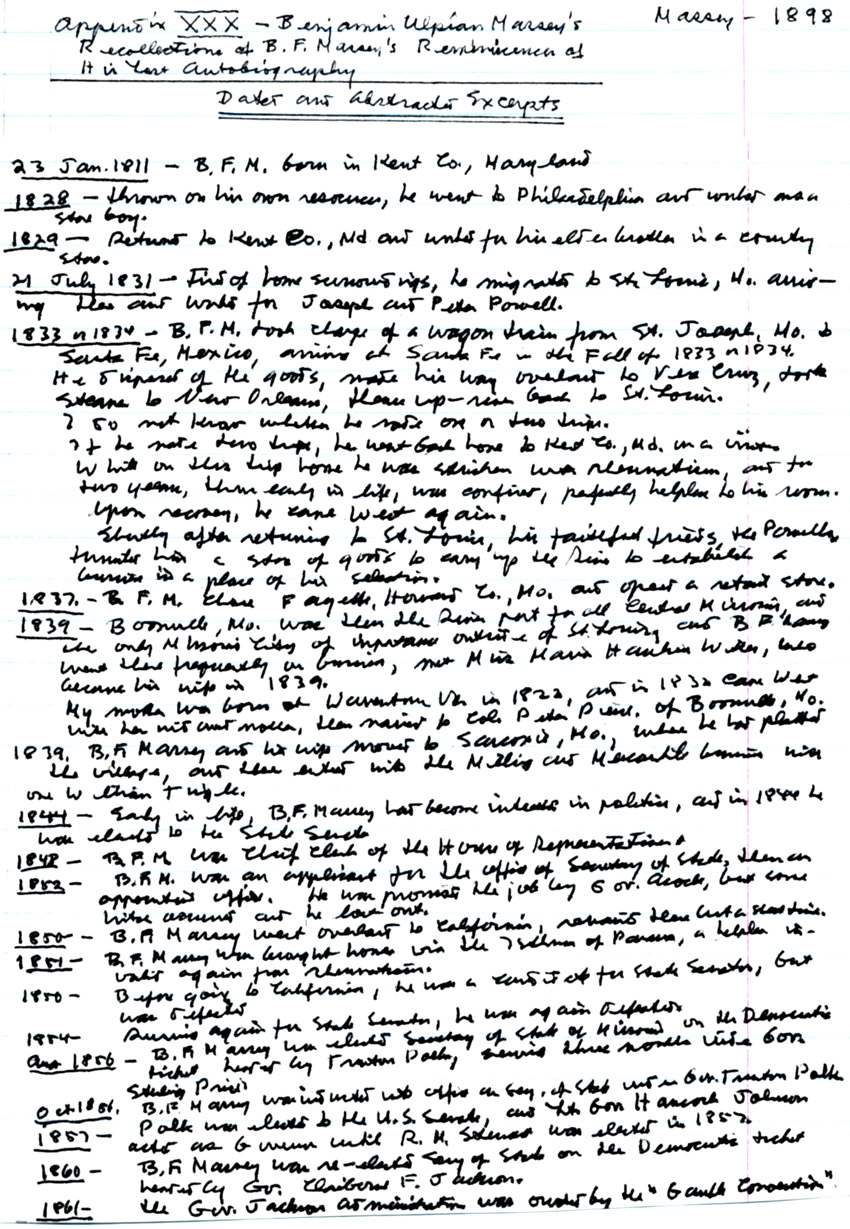 Massey – 1898
Appendix XXX – Benjamin Ulpian Massey's
Recollections of B.F. Massey's Reminiscences of
His Lost Autobiography
Dates and Abstracted Excerpts
23 Jan. 1811 – B.F.M. born in Kent Co., Maryland
1828 – thrown on his own resources, he went to Philadelphia and worked as a
store boy.
1829 – Returned to Kent Co., Md and worked for his elder brother in a country
store.
21 July 1831 – Tired of home surroundings, he migrated to St. Louis, Mo. arriv-
ing there and worked for Joseph and Peter Powell.
1833 or 1834 – B.F.M. took charge of a wagon train from St. Joseph, Mo. to
Santa Fe, Mexico, arriving at Santa Fe in the Fall of 1833 or 1834.
He disposed of the goods, made his way overland to Vera Cruz, took
steamer to New Orleans, thence up-river back to St. Louis.
I do not know whether he made one or two trips.
If he made two trips, he went back home to Kent Co., Md. on a visit.
While on this trip home he was stricken with rheumatism, and for
two years, thus early in life, was confined, perfectly helpless to his room.
Upon recovery, he came West again.
Shortly after returning to St. Louis, his faithful friends, the Powells,
him a store of goods to carry up the River to establish a
business in a place of his selection.
1837. – B.F.M. chose Fayette, Howard Co., Mo. and opened a retail store.
1839 – Boonville, Mo. was then the River port for all Central Missouri, and
the only Missouri City of importance outside of St. Louis, and B.F. having
went there frequently on business, met Miss Maria Hawkins Withers, who
became his wife in 1839.
My mother was born at Warrenton Va. in 1822, and in 1832 came West
with her and mother, then married to Col. Peter Pierce, of Boonville, Mo.
1839. B.F. Massey and his wife moved to Sarcoxie, Mo., where he had platted
the village, and there entered into the Milling and Mercantile business with
one William Tingle.
1844 – Early in life, B.F. Massey had become interested in politics, and in 1844 he
was elected to the State Senate
1848 – B.F.M. was Chief Clerk of the House of Representatives
1852 – B.F.M. was an applicant for the office of Secretary of State, then an
appointed office. He was promised the job by Gov. , but some
and he lost out.
1850 – B.F. Massey went overland to California, remained there but a short time.
1851 – B.F. Massey was brought home via the Isthmus of Panama, a helpless in-
valid again from rheumatism.
1850 – Before going to California, he was a candidate for State Senator, but
was defeated
1854 – Running again for State Senator, he was again defeated.
1856 – B.F. Massey was elected Secretary of State of Missouri on the Democratic
ticket headed by Trusten Polk, serving three months under Gov.
Sterling Price
Oct 1856. B.F. Massey was inducted into office as Secy. of State under Gov. Trusten Polk
1857 – Polk was elected to the U.S. Senate, and Lt. Gov Hancock Jackson
acted as Governor until R.M. Stewart was elected in 1857
1860 – B.F. Massey was re-elected Secy of State on the Democratic ticket
headed by Gov. Claiborne F. Jackson.
1861 – the Gov. Jackson Administration was ousted by the "Gamble Convention".